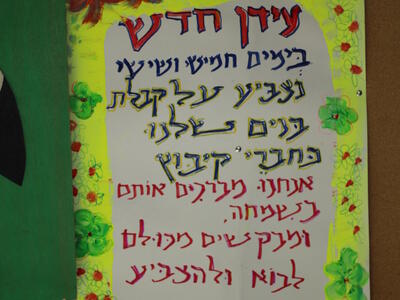 עידן חדש
בימים חמישי ושישי
נצביע על קבלת
בנים שלנו
כחברי קיבוץ
אנחנו מברכים אותם
בשמחה,
ומבקשים מכולם
לבוא ולהצביע